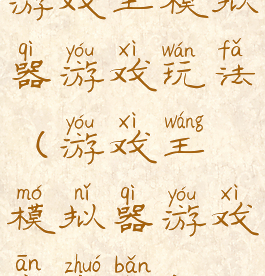 游戏王模拟
qì yóu xì wán fǎ
器游戏玩法
yóu xì wáng
(游戏王
mó nǐ qì yóu xì
模拟器游戏
ān zhuó bǎn